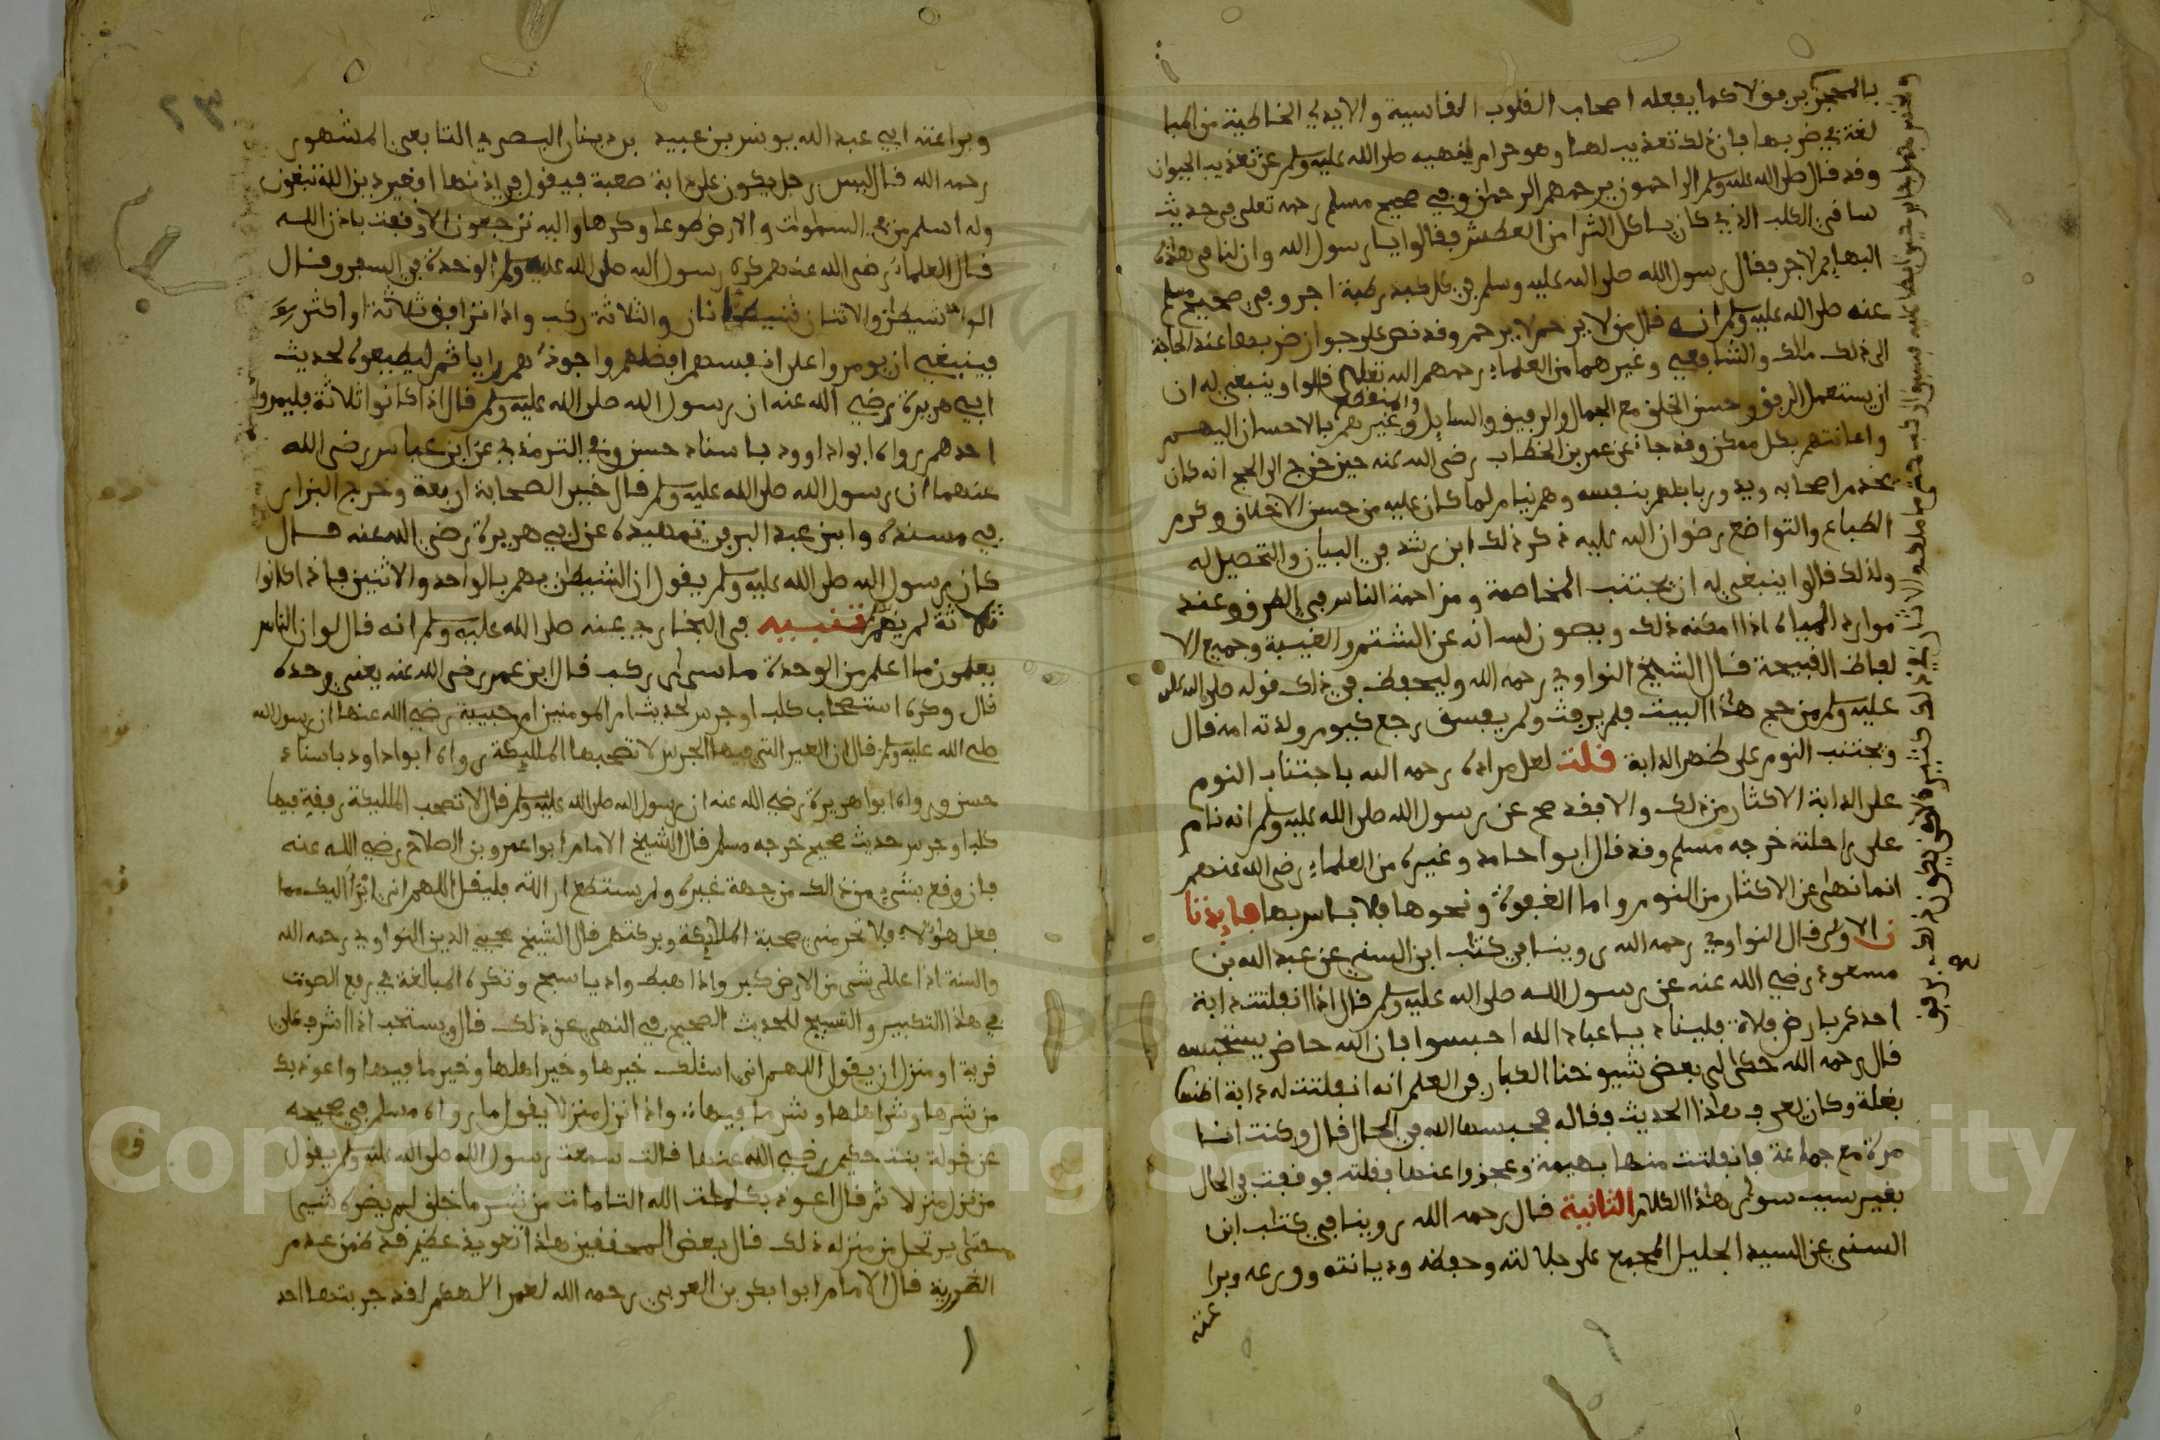 بالمحجن برفق لا كما يفعله اصحاب القلوب القاسية والايدي الخاطية من المبا
لغة في ضربها فان ذلك تعذيب لها وهو حرام لنهيه صلى الله عليه وسلم عن تعذيب الحيوان
وقد قال صلى الله عليه وسلم الراحمون يرحمهم الرحمان وفي صحيح مسلم رحمه تعلى في حديث
ساقي الكلب الذي كان ياكل الثرا من العطش فقالوا يا رسول الله وان لنا في هاذه
البهايم لاجر فقال رسول الله صلى الله عليه وسلم في كل كبد رطبة اجر وفي صحيح مسلم
عنه صلى الله عليه وسلم انه قال من لا يرحم لا يرحم وقد نص على جواز ضربها عند الحاجة
الى ذلك مالك والشافعي وغيرهما من العلماء رحمهم الله تعلى قالوا وينبغي له ان
ان يستعمل الرفق وحسن الخلق مع الجمال والرفيق والسايل وغيرهم بالاحسان اليهم
واعانتهم بكل ممكن وقد جا عن عمر بن الخطاب رضى الله عنه حين خرج الى الحج انه كان
يخدم اصحابه ويدور باباطهم بنفسه وهم نيام لما كان عليه من حسن الاخلاق وكرم
الطباع والتواضع رضوان الله عليه ذكر ذلك ابن رشد في البيان والتحصيل له
ولذلك قالوا ينبغي له ان يجتنب المخاصمة ومزاحمة الناس في الطرق وعند
موارد المياه اذا امكنه ذلك ويصون لسانه عن الشتم والغيبة وجميع الا
لفاظ القبيحة قال الشيخ النواوي رحمه الله وليحفظ في ذلك قوله صلى الله عليه
عليه وسلم من حج هذا البيت فلم يرفث ولم يفسق رجع كيوم ولدته امه قال
وتجتنب النوم على ظهر الدابة قلت لعل مراده رحمه الله باجتناب النوم
على الدابة الاكثار من ذلك والا فقد صح عن رسول الله صلى الله عليه وسلم انه نام
على راحلته خرجه مسلم وقد قال ابو احامد وغيره من العلماء رضى الله عنهم
انما نهى عن الاكثار من النوم واما الغفوة ونحوها فلا باس بها فايدتا
ن الاولى قال النواوي رحمه الله روينا في كتاب ابن السني عن عبد الله بن
مسعود رضي الله عنه عن رسول الله صلى الله عليه وسلم قال اذا انفلتت دابة
احدكم بارض فلاة فليناد يا عباد الله احبسوا فان الله حاضر يستحبسه
قال رحمه الله حكى لي بعض شيوخنا الكبار في العلم انه انفلتت له دابة اظنها
بغلة وكان يعرف هذا الحديث فقاله فحبسها الله في الحال قال وكنت انا
مرة مع جماعة فانفلتت منها بهيمة وعجزوا عنها فقلته فوقفت في الحال
بغير سبب سوى هذا الكلام الثانية قال رحمه الله روينا في كتاب ابن
السني عن السيد الجليل المجمع على جلالته وحفظه وديانته وورعه وبرا
عته
٢٣
وبراعته ابي عبد الله يونس بن عبيد بن دينار البصري التابعي المشهور
رحمه الله قال ليس رجل يكون على دابة صعبة فيقول في اذنها افغير دين الله تبغون
وله اسلم من في السماوات والارض طوعا وكرها واليه ترجعون الا وقفت باذن الله
قال العلماء رضي الله عنهم كره رسول الله صلى الله عليه وسلم الوحدة في السفر وقال
الواحد شيطان والاثنان شيطانان والثلاثة ركب واذا ترافق ثلاثة او اكثر
فينبغي ان يومروا على انفسهم افضلهم واجودهم رايا ثم ليطيعوه لحديث
ابي هريرة رضي الله عنه ان رسول الله صلى الله عليه وسلم قال اذا كانوا ثلاثة فليمروا
احدهم رواه ابوا داوود باسناد حسن وفي الترمذي عن ابن عباس رضى الله
عنهما ان رسول الله صلى الله عليه وسلم قال خير الصحابة اربعة وخرج البزار
في مسنده وابن عبد البر في تمهيده عن ابي هريرة رضى الله عنه قال
كان رسول الله صلى الله عليه وسلم يقول ان الشيطان يهم بالواحد والاثنين فاذا كانوا
ثلاثة لم يهم تنبيه في البخاري عنه صلى الله عليه وسلم انه قال لو ان الناس
يعلمون ما اعلم من الوحدة ما سرى ركب قال ابن عمر رضى الله عنه يعني وحده
قال وكره استصحاب كلب او جرس لحديث ام المومنين ام حبيبة رضي الله عنها ان رسول الله
صلى الله عليه وسلم قال ان العير التي فيها الجرس لا تصحبها المليكة رواه ابوا داود باسناد
حسن ورواه ابوا هريرة رضي الله عنه ان رسول الله صلى الله عليه وسلم قال لا تصحب المليكة رفقة فيها
كلب او جرس حديث صحيح خرجه مسلم قال الشيخ الامام ابوا عمرو بن الصلاح رضي الله عنه
فان وقع شيء من ذالك من جهة غيره ولم يستطع ازالته فليقل اللهم اني ابرا اليك مما
فعل هؤلاء فلا تحرمني صحبة الملايكة وبركتهم قال الشيخ محيي الدين النواوي رحمه الله
والسنة اذا علا شي من الارض كبر واذا هبط واديا سبح وتكره المبالغة في رفع الصوت
في هذا التكبير والتسبيح للحديث الصحيح في النهي عن ذلك قال ويستحب اذا اشرف على
قرية او منزل ان يقول اللهم اني اسئلك خيرها وخير اهلها وخير ما فيها واعوذ بك
من شرها وشر اهلها وشر ما فيها واذا نزل منزلا يقول ما رواه مسلم في صحيحه
عن خولة بنت حكيم رضي الله عنها قالت سمعت رسول الله صلى الله عليه وسلم يقول
من نزل منزلا ثم قال اعوذ بكلمات الله التامات من شر ما خلق لم يضره شيء
حتى يرتحل من منزله ذلك قال بعض المحققين هذا تعويذ عظيم قد ضمن عدم
الضرورية قال الامام ابوا بكر بن العربي رحمه الله لعمر الاهكم لقد جربتها احد
Copyright © King Saud University